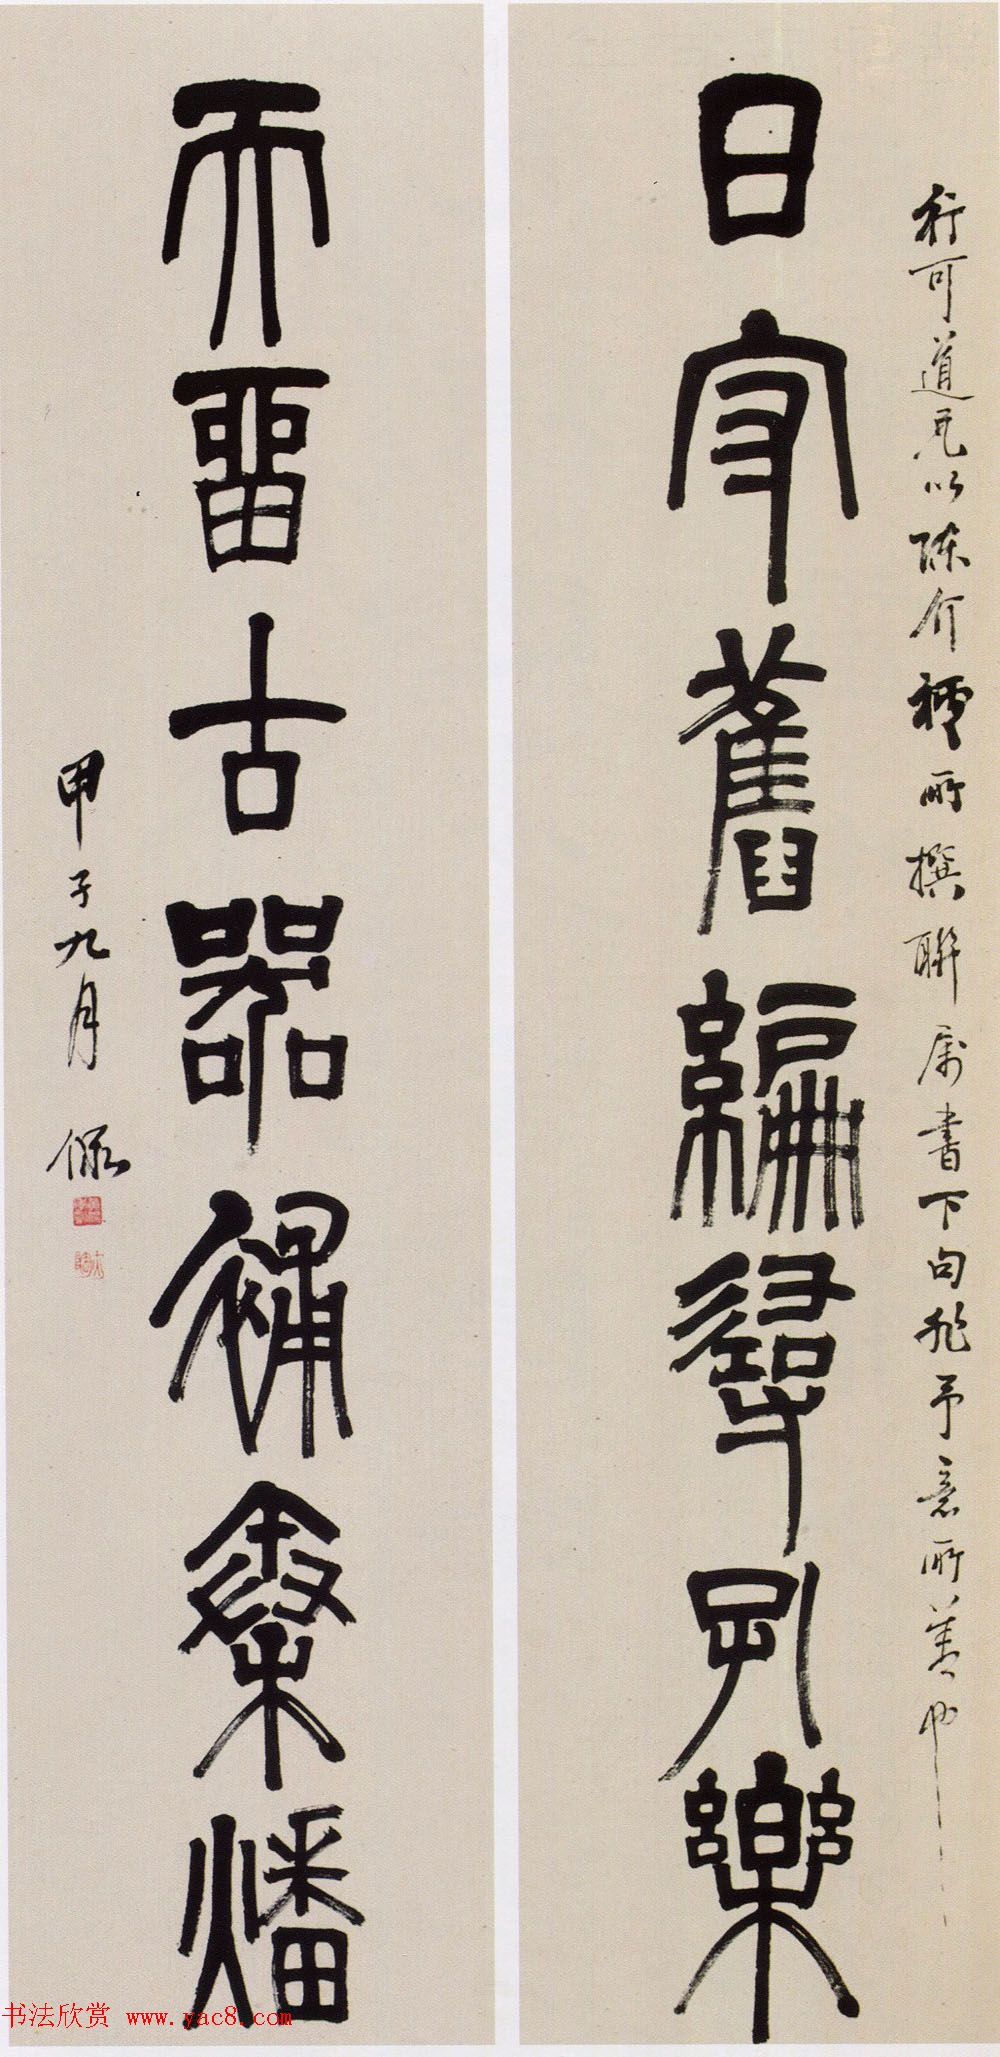 行可道兄以陳介祺所撰聯屬書下句非予意所善也
日守舊編尋孔樂
天畱古器補秦燔
甲子九月 侃
书法欣赏 www.yac8.com